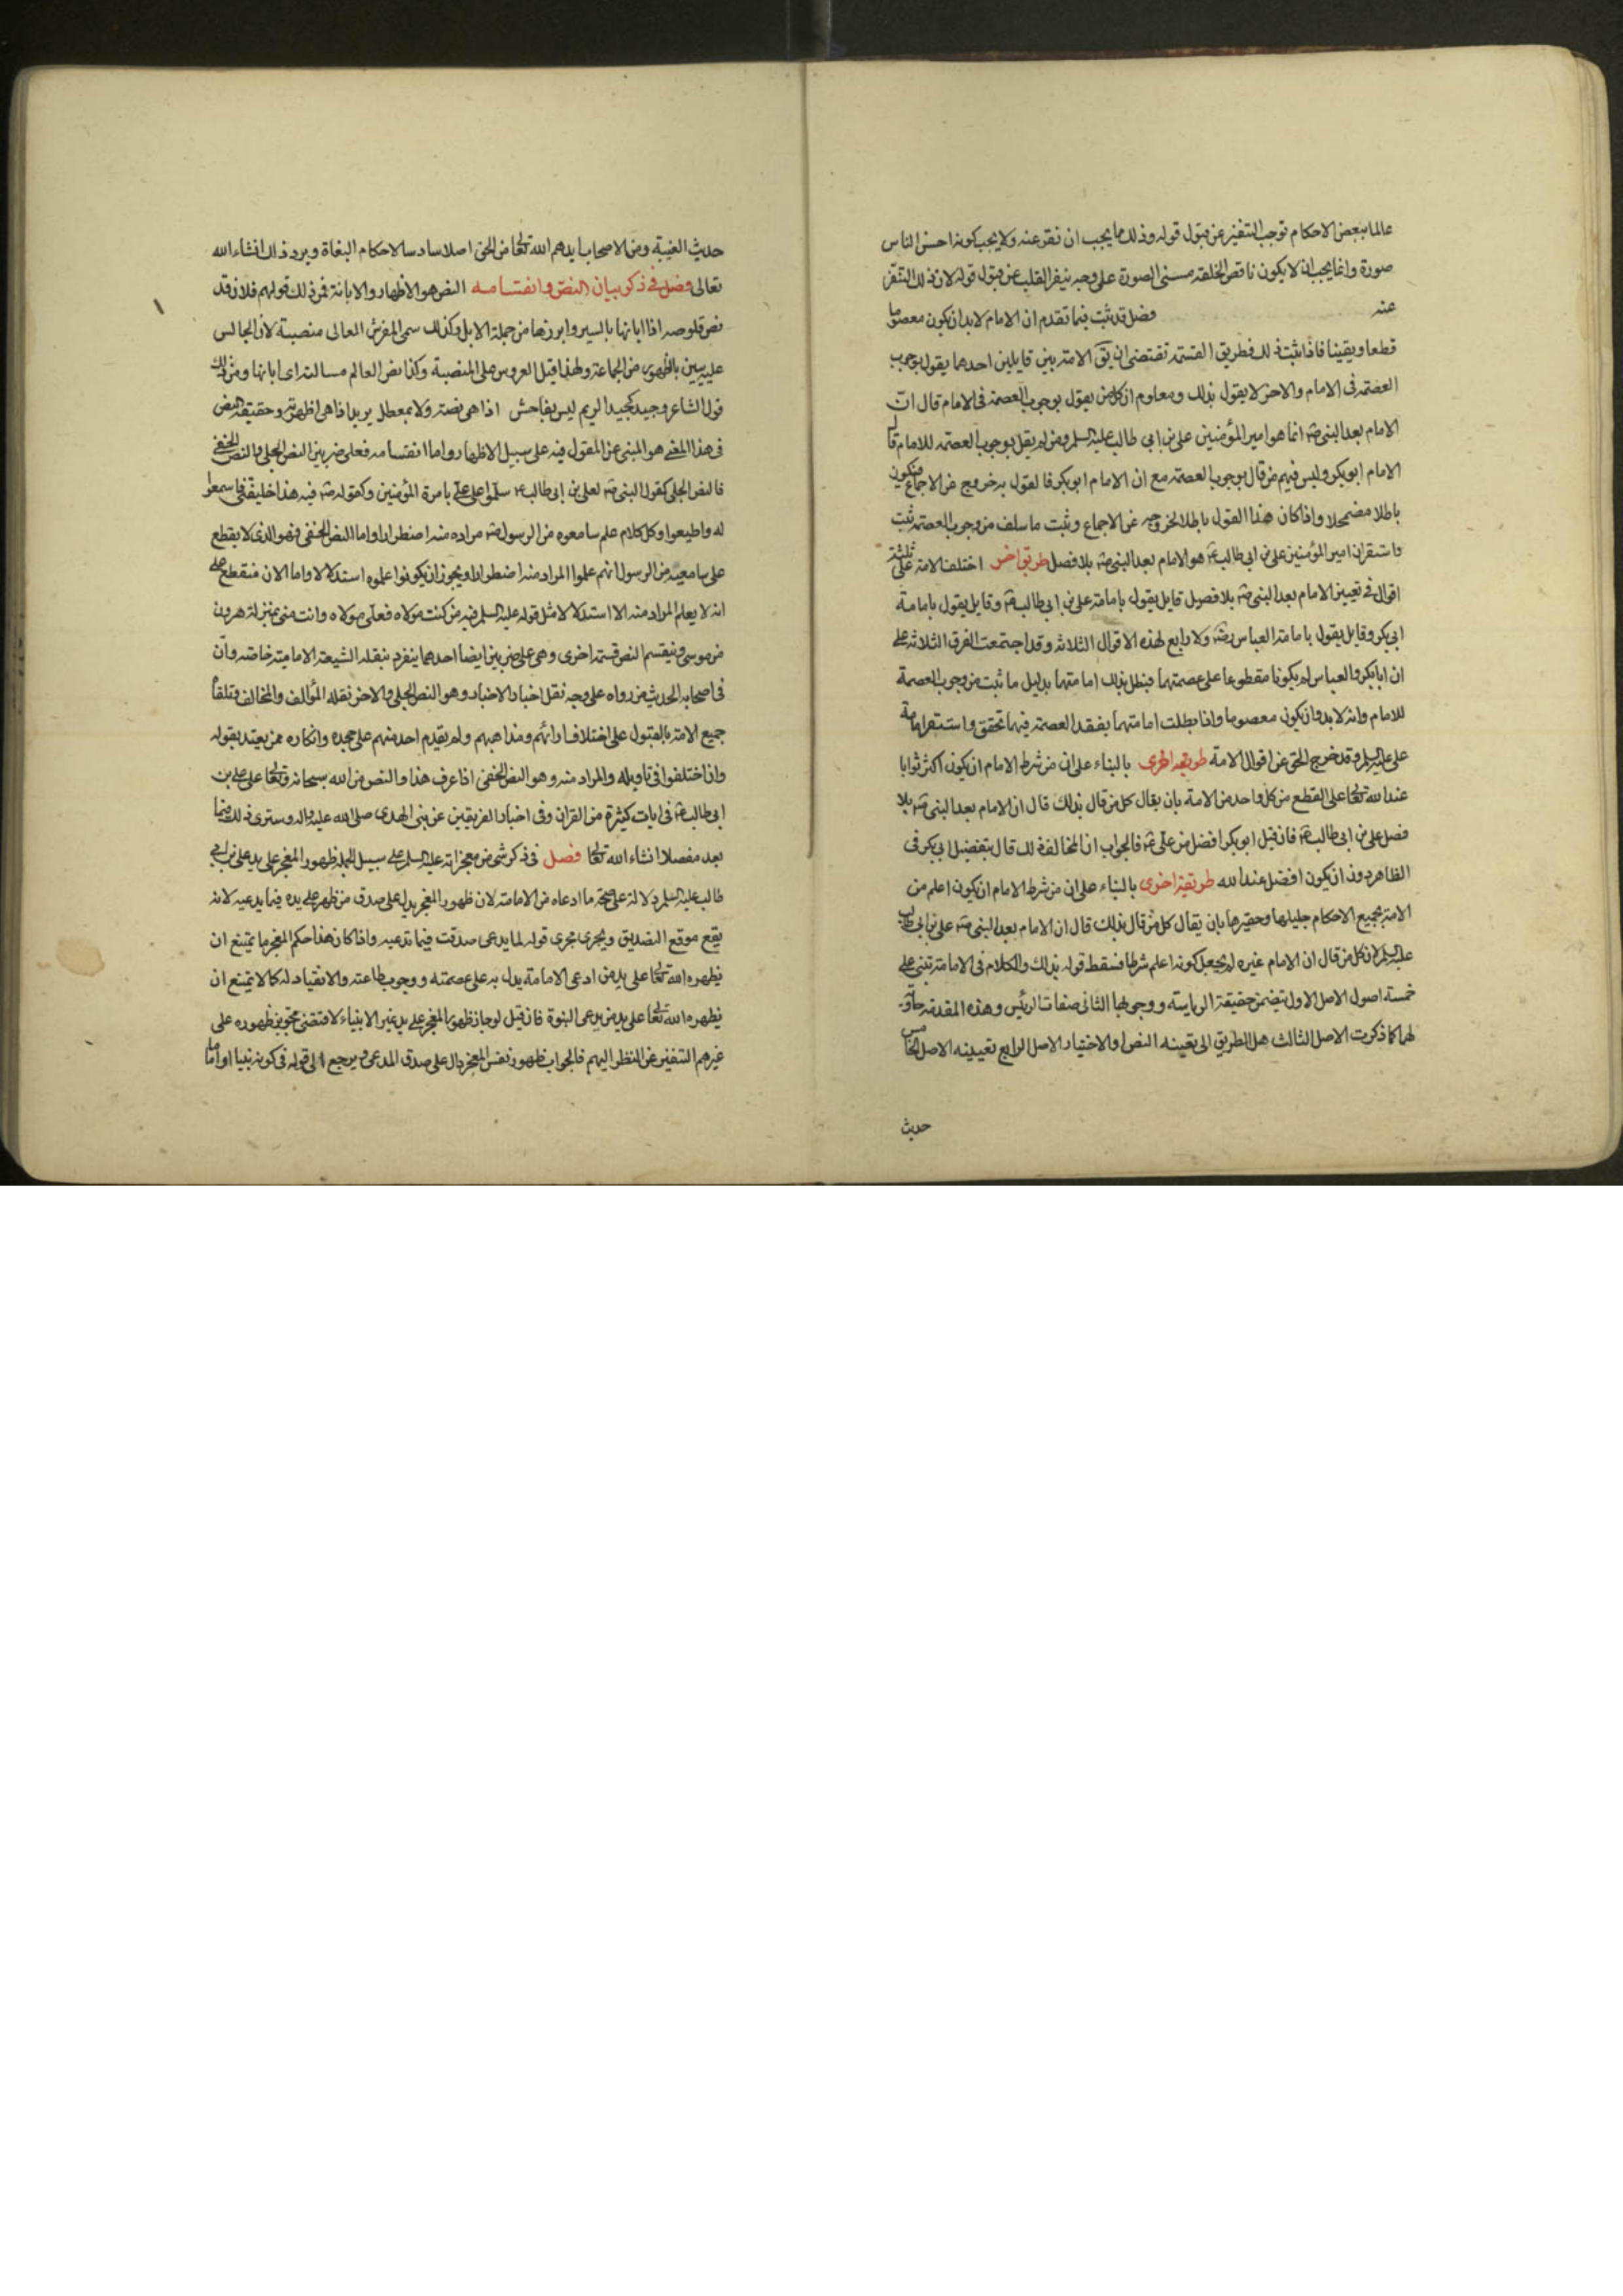 عالما ببعض الاحكام توجب التنفير عن قبول قوله وذلك مما يجب ان تنفر عنه ولا يجب كونه احسن الناس
صورة وانما يجب ان لا يكون ناقص الخلقة مسنى الصورة على وجه ينفر القلب عن قبول قوله لان ذلك التنفر
عنه فصل قد ثبت فيما تقدم ان الامام لابد ان يكون معصوما
قطعا ويقينا فاذا ثبت ذلك فطريق القسمة تقتضى ان يق الامة بين قايلين احدهما يقول بوجوب
العصمة فى الامام والاخر لا يقول بذلك ومعلوم ان كل من يقول بوجوب العصمة فى الامام قال ان
الامام بعد النبى انما هو امير المؤمنين على بن ابي طالب عليه السلم ومن لم يقل بوجوب العصمة للامام قال
الامام ابوبكر وليس فيهم من قال بوجوب العصمة مع ان الامام ابوبكر فالقول به خروج عن الاجماع فيكون
باطلا مضمحلا واذا كان هذا القول باطلا لخروجه عن الاجماع وثبت ما سلف من وجوب العصمة ثبت
واستقر ان امير المؤمنين على بن ابى طالب هو الامام بعد النبى بلا فصل طريق اخر اختلف الامة على ثلثة
اقوال فى تعيين الامام بعد النبى بلا فصل قايل يقول بامامة على بن ابي طالب وقايل يقول بامامة
ابى بكر وقايل يقول بامامة العباس ولا رابع لهذه الاقوال الثلاثة وقد اجتمعت الفرق الثلاثة على
ان ابابكر والعباس لم يكونا مقطوعا على عصمتهما فبطل بذلك امامتهما بدليل ما ثبت من وجوب العصمة
للامام وانه لابد وان يكون معصوما واذا بطلت امامتهما بفقد العصمة فيهما تحقق واستقر امامة
على عليه السلم وقد خرج الحق عن اقوال الامة طريقه اخرى بالبناء على ان من شرط الامام ان يكون اكثر ثوابا
عند الله تعالى على القطع من كل واحد من الامة بان يقال كل من قال بذلك قال ان الامام بعد النبى بلا
فصل على بن ابى طالب فان قيل ابوبكر افضل من على فالجواب ان المخالف فى ذلك قال بتفضيل ابى بكر فى
الظاهر دون ان يكون افضل عند الله طريقة اخرى بالبناء على ان من شرط الامام ان يكون اعلم من
الامة بجميع الاحكام جليلها وحقيرها بان يقال كل من قال بذلك قال ان الامام بعد النبى على بن ابى طالب
عليه السلم لان كل من قال ان الامام غيره لم يجعل كونه اعلم شرطا فسقط قوله بذلك والكلام فى الامامة تبتنى على
خمسة اصول الاصل الاول يتضمن حقيقة الرياسة ووجوبها الثانى صفات الرئيس وهذه المقدمة
لهما كما ذكرت الاصل الثالث هل الطريق الى تعيينه النص او الاختيار الاصل الرابع تعيينه الاصل الخامس
حديث
حديث الغيبة ومن الاصحاب ايدهم الله تعالى من الحق اصلا سادسا لاحكام البغاة ويرد ذلك انشاء الله
تعالى فصل فى ذكر بيان النص وانقسامه النص هو الاظهار والابانة فمن ذلك قولهم فلان قد
نص قلوصه اذا ابانها بالسير وابرزها من جملة الابل وكذلك سمى المفرش العالى منصبة لان الجالس
عليه يبين بالظهور من الجماعة ولهذا قيل العروس على المنصبة وكذا نص العالم مسالته اى ابانها ومن ذلك
قول الشاعر وجيد كجيد الريم ليس بفاحش اذا هى نصته ولا بمعطل يريد اذا هى اظهرته وحقيقة النص
فى هذا المعنى هو المبنى عن المقول فيه على سبيل الاظهار واما انقسامه فعلى ضربين النص الجلى والنص الخفى
فالنص الجلى كقول النبى لعلى بن ابى طالب سلموا على على بامرة المؤمنين وكقوله فيه هذا خليفتى فاسمعوا
له واطيعوا وكل كلام علم سامعوه من الرسول مراده منه اضطرارا واما النص الخفى فهو الذى لا يقطع
على سامعيه من الرسول انهم علموا المراد منه اضطرارا ويجوز ان يكونوا علموه استدلالا واما الان فنقطع على
انه لا يعلم المراد منه الا استدلالا مثل قوله عليه السلم فيه من كنت مولاه فعلى مولاه وانت منى بمنزلة هرون
من موسى وينقسم النص قسمة اخرى وهى على ضربين ايضا احدهما ينفرد بنقله الشيعة الامامية خاصة وان
فى اصحاب الحديث من رواه على وجه نقل اخبار الاخبار وهو النص الجلى والاخر نقله المؤالف والمخالف وتلقاه
جميع الامة بالقبول على اختلاف ارائهم ومذاهبهم ولم يقدم احد منهم على جحده وانكاره ممن يعتد بقوله
وان اختلفوا فى تاويله والمراد منه وهو النص الخفى اذا عرف هذا والنص من الله سبحانه وتعالى على على بن
ابى طالب فى ايات كثيرة من القران وفى اخبار الفريقين عن نبى الهدى صلى الله عليه واله وسترى ذلك فيما
بعد مفصلا انشاء الله تعالى فصل فى ذكر شئ من معجزاته عليه السلم على سبيل الجملة ظهور المعجز على يد على بن ابى
طالب عليه السلم دلالة على صحة ما ادعاه من الامامة لان ظهور المعجز يدل على صدق من ظهر على يده فيما يدعيه لانه
يقع موقع التصديق ويجرى مجرى قوله لما يدعى صدقت فيما تدعيه واذا كان هذا حكم المعجز ما يمتنع ان
يظهره الله تعالى على يد من ادعى الامامة يدل به على عصمته ووجوب طاعته والانقياد له كما لا يمتنع ان
يظهره الله تعالى على يد من يدعى النبوة فان قيل لو جاز ظهور المعجز على يد غير الانبياء لاقتضى تجويز ظهوره على
غيرهم التنفير عن النظر اليهم فالجواب ظهور نفس المعجز دال على صدق المدعى ويرجع الى قوله فى كونه نبيا او اماما